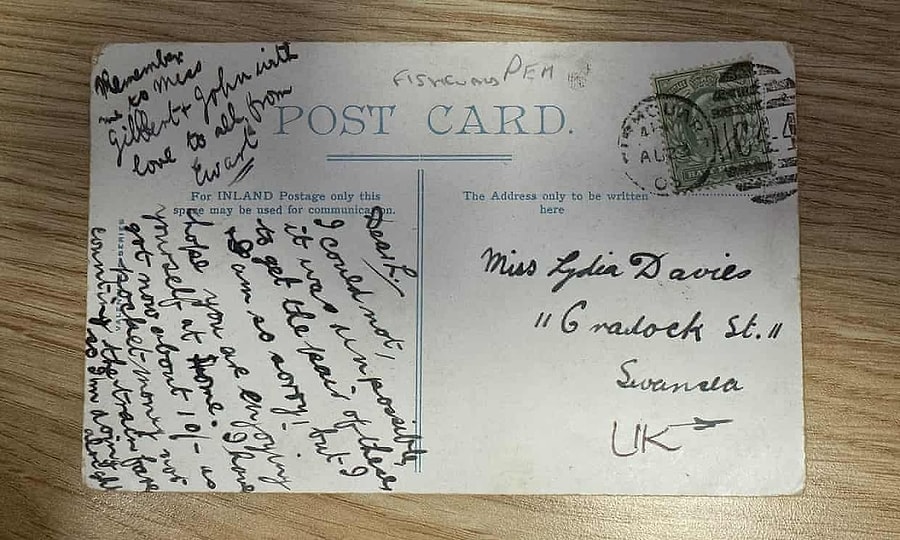 Remember
me to Miss
Gilbert & John with
love to all from
Ewart
PEM
POST CARD.
For INLAND Postage only this
space may be used for communication.
The Address only to be written
here
Dear L.
I could not,
it was impossible,
to get the pair of these
but I
am so sorry! I
hope you are enjoying
yourself at home. I have
got now about 10/- as
pocket-money not
counting the train fare
so I'm alright
Miss Lydia Davies
"Cradock St."
Swansea
UK
AU